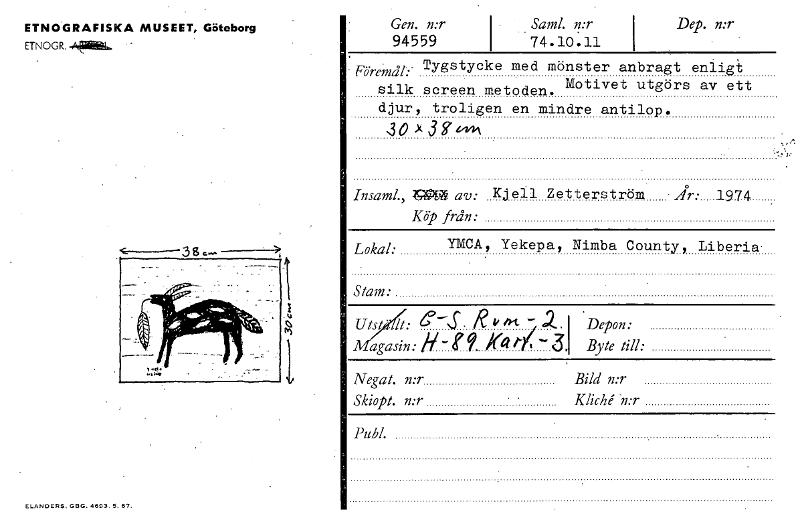 ETNOGRAFISKA MUSEET, Göteborg
ETNOGR.
Gen. n:r Saml. n:r Dep. n:r
94559 74.10.11
Föremål: Tygstycke med mönster anbragt enligt
silk screen metoden. Motivet utgörs av ett
djur, troligen en mindre antilop.
30 x 38 cm
Insaml., av: Kjell Zetterström År: 1974
Köp från:
Lokal: YMCA, Yekepa, Nimba County, Liberia
Stam:
38 cm
30 cm
Utställt: G-S Rum-2. Depon:
Magasin: H-89 Kart.-3. Byte till:
Negat. n:r Bild n:r
Skiopt. n:r Kliché n:r
Publ.
ELANDERS, GBG. 4693. 5. 67.